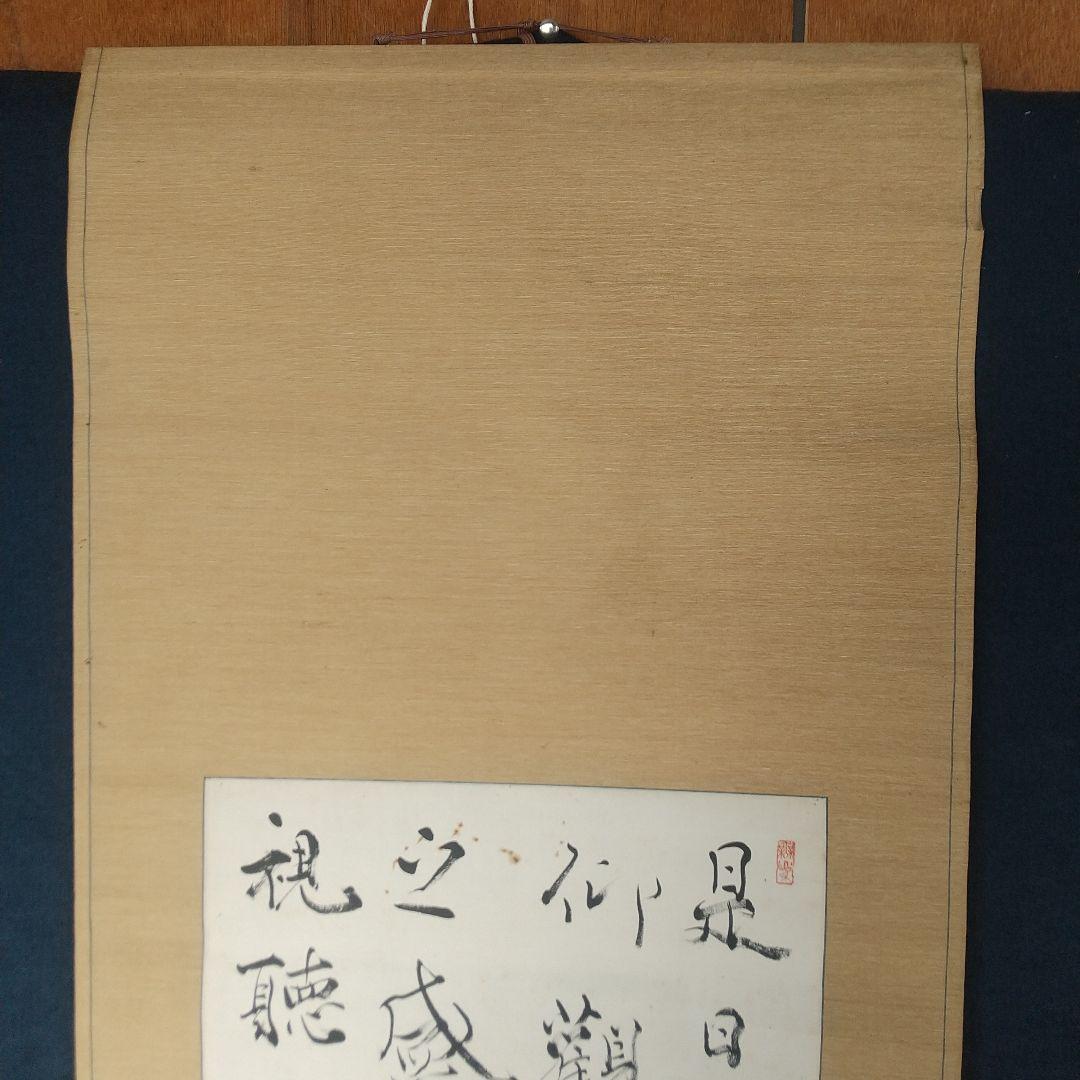 是日
仰觀
之盛
視聽